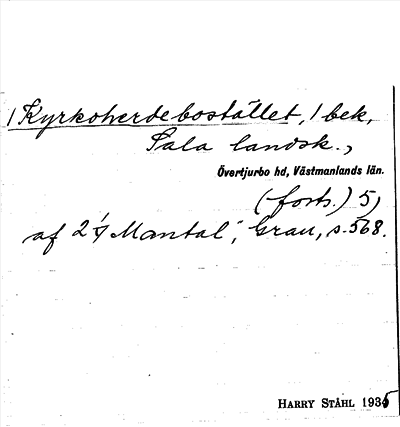 /Kyrkoherdebostället,/ bek,
Sala landsk.,
Övertjurbo hd, Västmanlands län.
(forts.) 5)
af 2 1/4 Mantal", Grau, s. 568.
HARRY STÅHL 1935